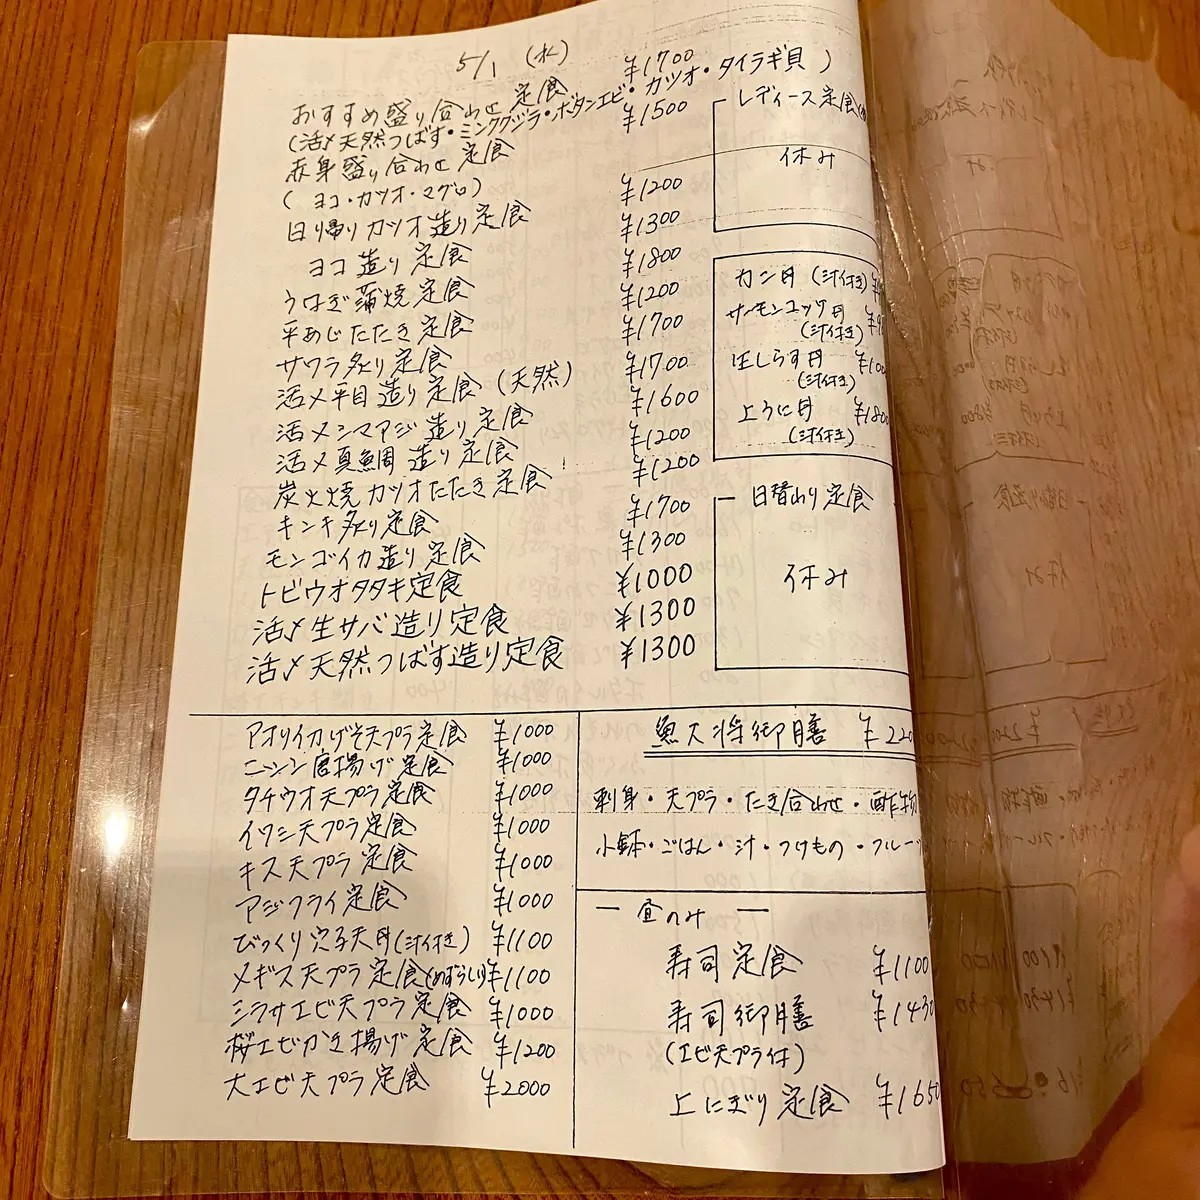 5/1 (水)
おすすめ盛り合わせ定食 ¥1700
(活〆天然つばす・ミンククジラ・ボタンエビ・カツオ・タイラギ貝)
赤身盛り合わせ定食 ¥1500
(ヨコ・カツオ・マグロ)
日帰りカツオ造り定食 ¥1200
ヨコ造り定食 ¥1300
うなぎ蒲焼定食 ¥1800
平あじたたき定食 ¥1200
サワラ炙り定食 ¥1700
活〆平目造り定食(天然) ¥1700
活〆シマアジ造り定食 ¥1600
活〆真鯛造り定食 ¥1200
炭火焼カツオたたき定食 ¥1200
キンキ炙り定食 ¥1700
モンゴイカ造り定食 ¥1300
トビウオタタキ定食 ¥1000
活〆生サバ造り定食 ¥1300
活〆天然つばす造り定食 ¥1300
レディース定食
休み
カニ丼(汁付き)
サーモンユッケ丼
(汁付き)
生しらす丼
(汁付き)
上うに丼 ¥1800
(汁付き)
日替わり定食
休み
アオリイカげそ天プラ定食 ¥1000
ニシン唐揚げ定食 ¥1000
タチウオ天プラ定食 ¥1000
イワシ天プラ定食 ¥1000
キス天プラ定食 ¥1000
アジフライ定食 ¥1000
びっくり穴子天丼(汁付き) ¥1100
メギス天プラ定食(めずらしい) ¥1100
シラサエビ天プラ定食 ¥1000
桜エビかき揚げ定食 ¥1200
大エビ天プラ定食 ¥2000
魚大将御膳
刺身・天プラ・たき合わせ・酢物
小鉢・ごはん・汁・つけもの・フルーツ
ー 昼のみ ー
寿司定食 ¥1100
寿司御膳 ¥1430
(エビ天プラ付)
上にぎり定食 ¥1650